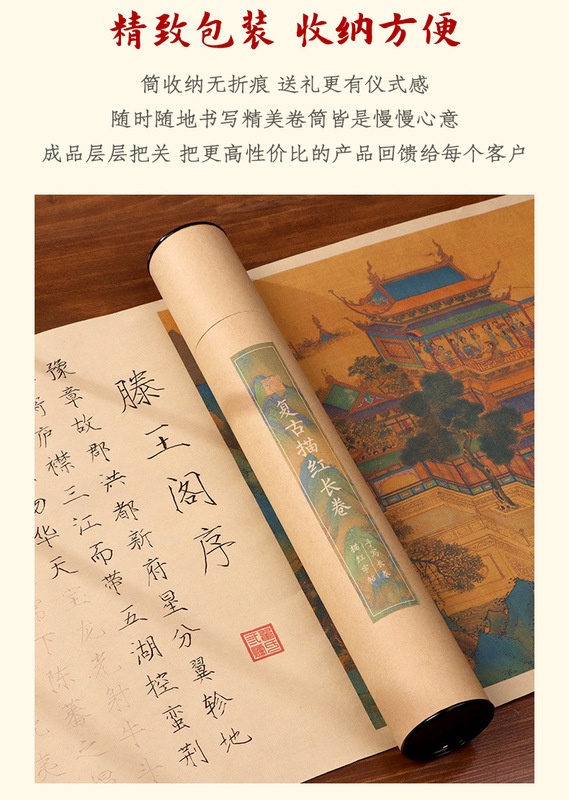 精致包装 收纳方便
筒收纳无折痕 送礼更有仪式感
随时随地书写精美卷筒皆是慢慢心意
成品层层把关 把更高性价比的产品回馈给每个客户
滕王阁序
豫章故郡洪都新府星分翼轸地
襟三江而带五湖控蛮荆
华天宝龙光射牛斗
下陈蕃之
复古描红长卷
手写长卷
描红字帖